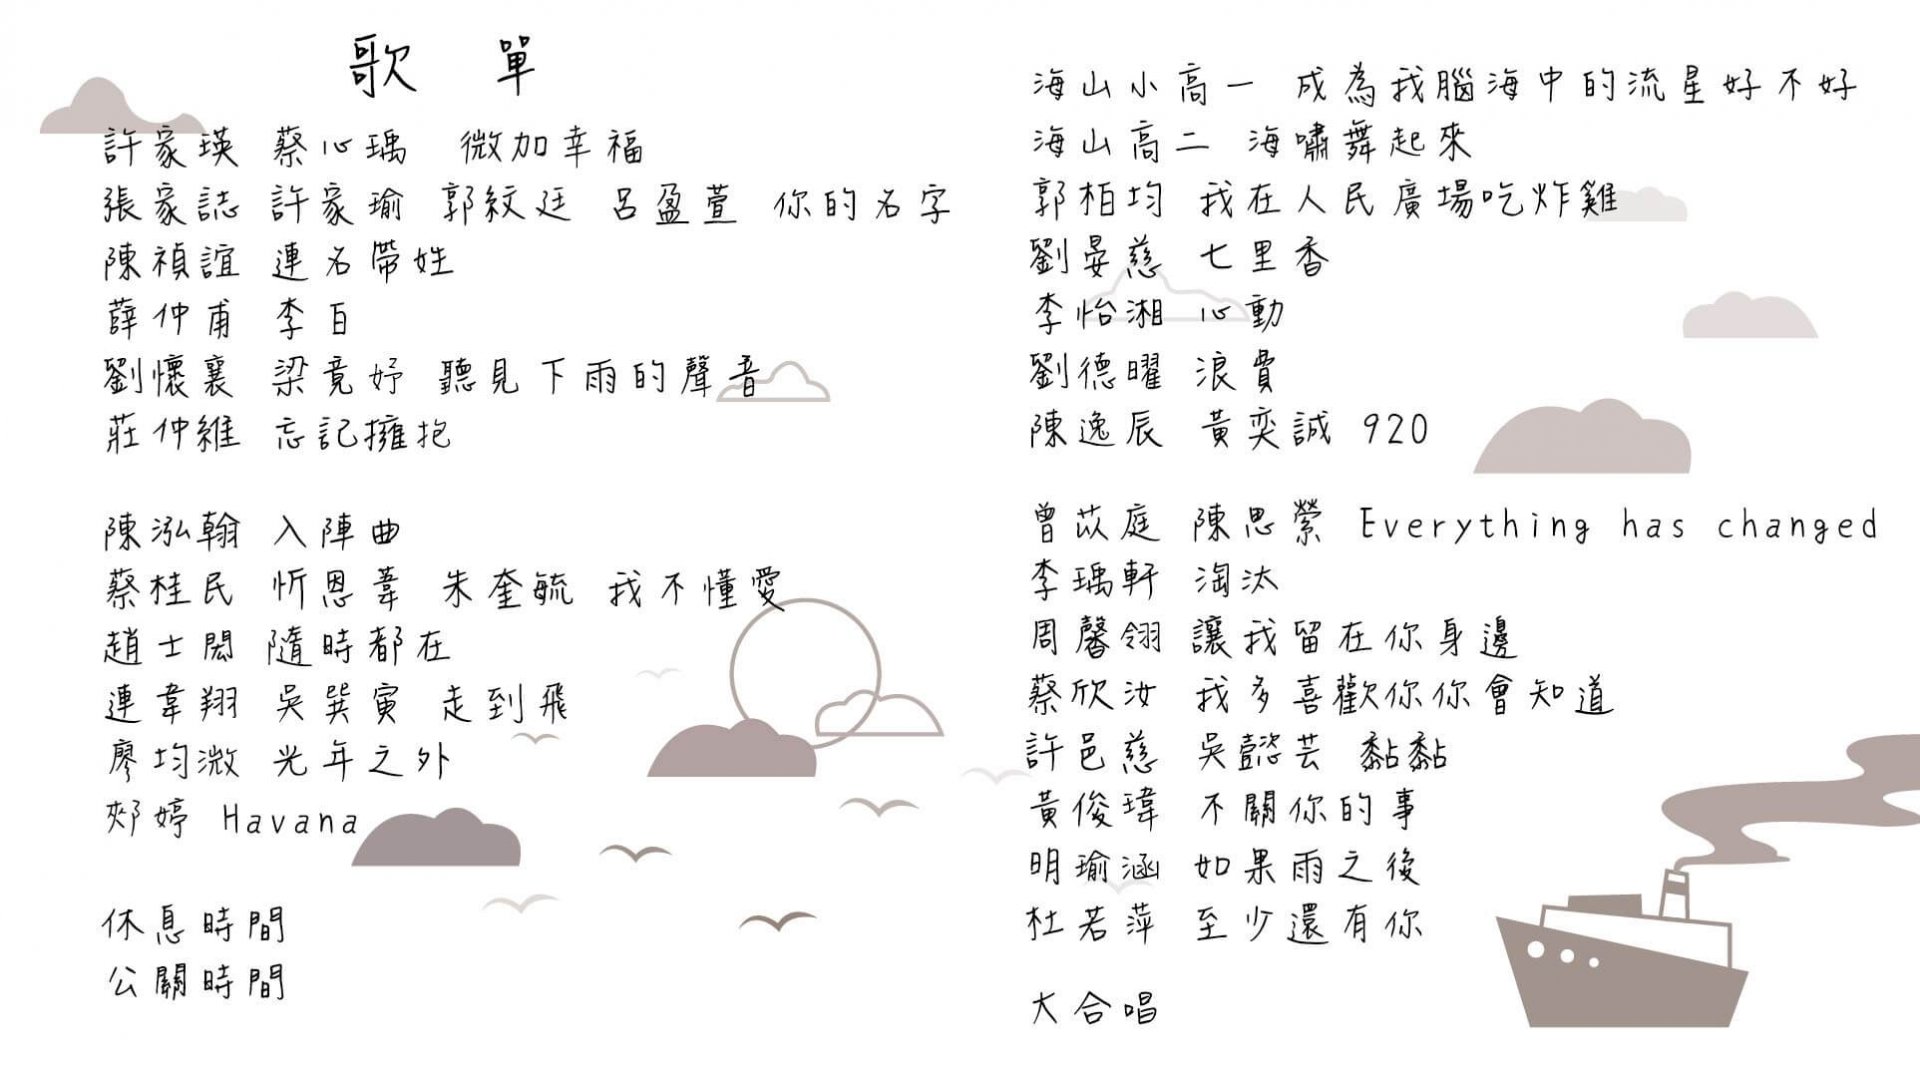 歌 單
許家瑛 蔡心瑀 微加幸福
張家誌 許家瑜 郭紋廷 呂盈萱 你的名字
陳禎誼 連名帶姓
薛仲甫 李白
劉懷襄 梁竟妤 聽見下雨的聲音
莊仲維 忘記擁抱
陳泓翰 入陣曲
蔡桂民 忻恩葦 朱奎毓 我不懂愛
趙士閎 隨時都在
連葦翔 吳巽寅 走到飛
廖均溦 光年之外
郟婷 Havana
休息時間
公關時間
海山小高一 成為我腦海中的流星好不好
海山高二 海嘯舞起來
郭柏均 我在人民廣場吃炸雞
劉晏慈 七里香
李怡湘 心動
劉德曜 浪費
陳逸辰 黃奕誠 920
曾苡庭 陳思縈 Everything has changed
李瑀軒 淘汰
周馨翎 讓我留在你身邊
蔡欣汝 我多喜歡你你會知道
許邑慈 吳懿芸 黏黏
黃俊瑋 不關你的事
明瑜涵 如果雨之後
杜若萍 至少還有你
大合唱